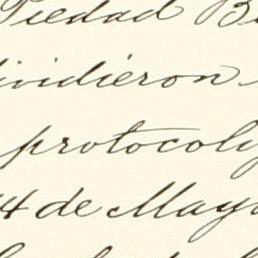 Piedad B
ividieron
protocoly
14 de Mayo